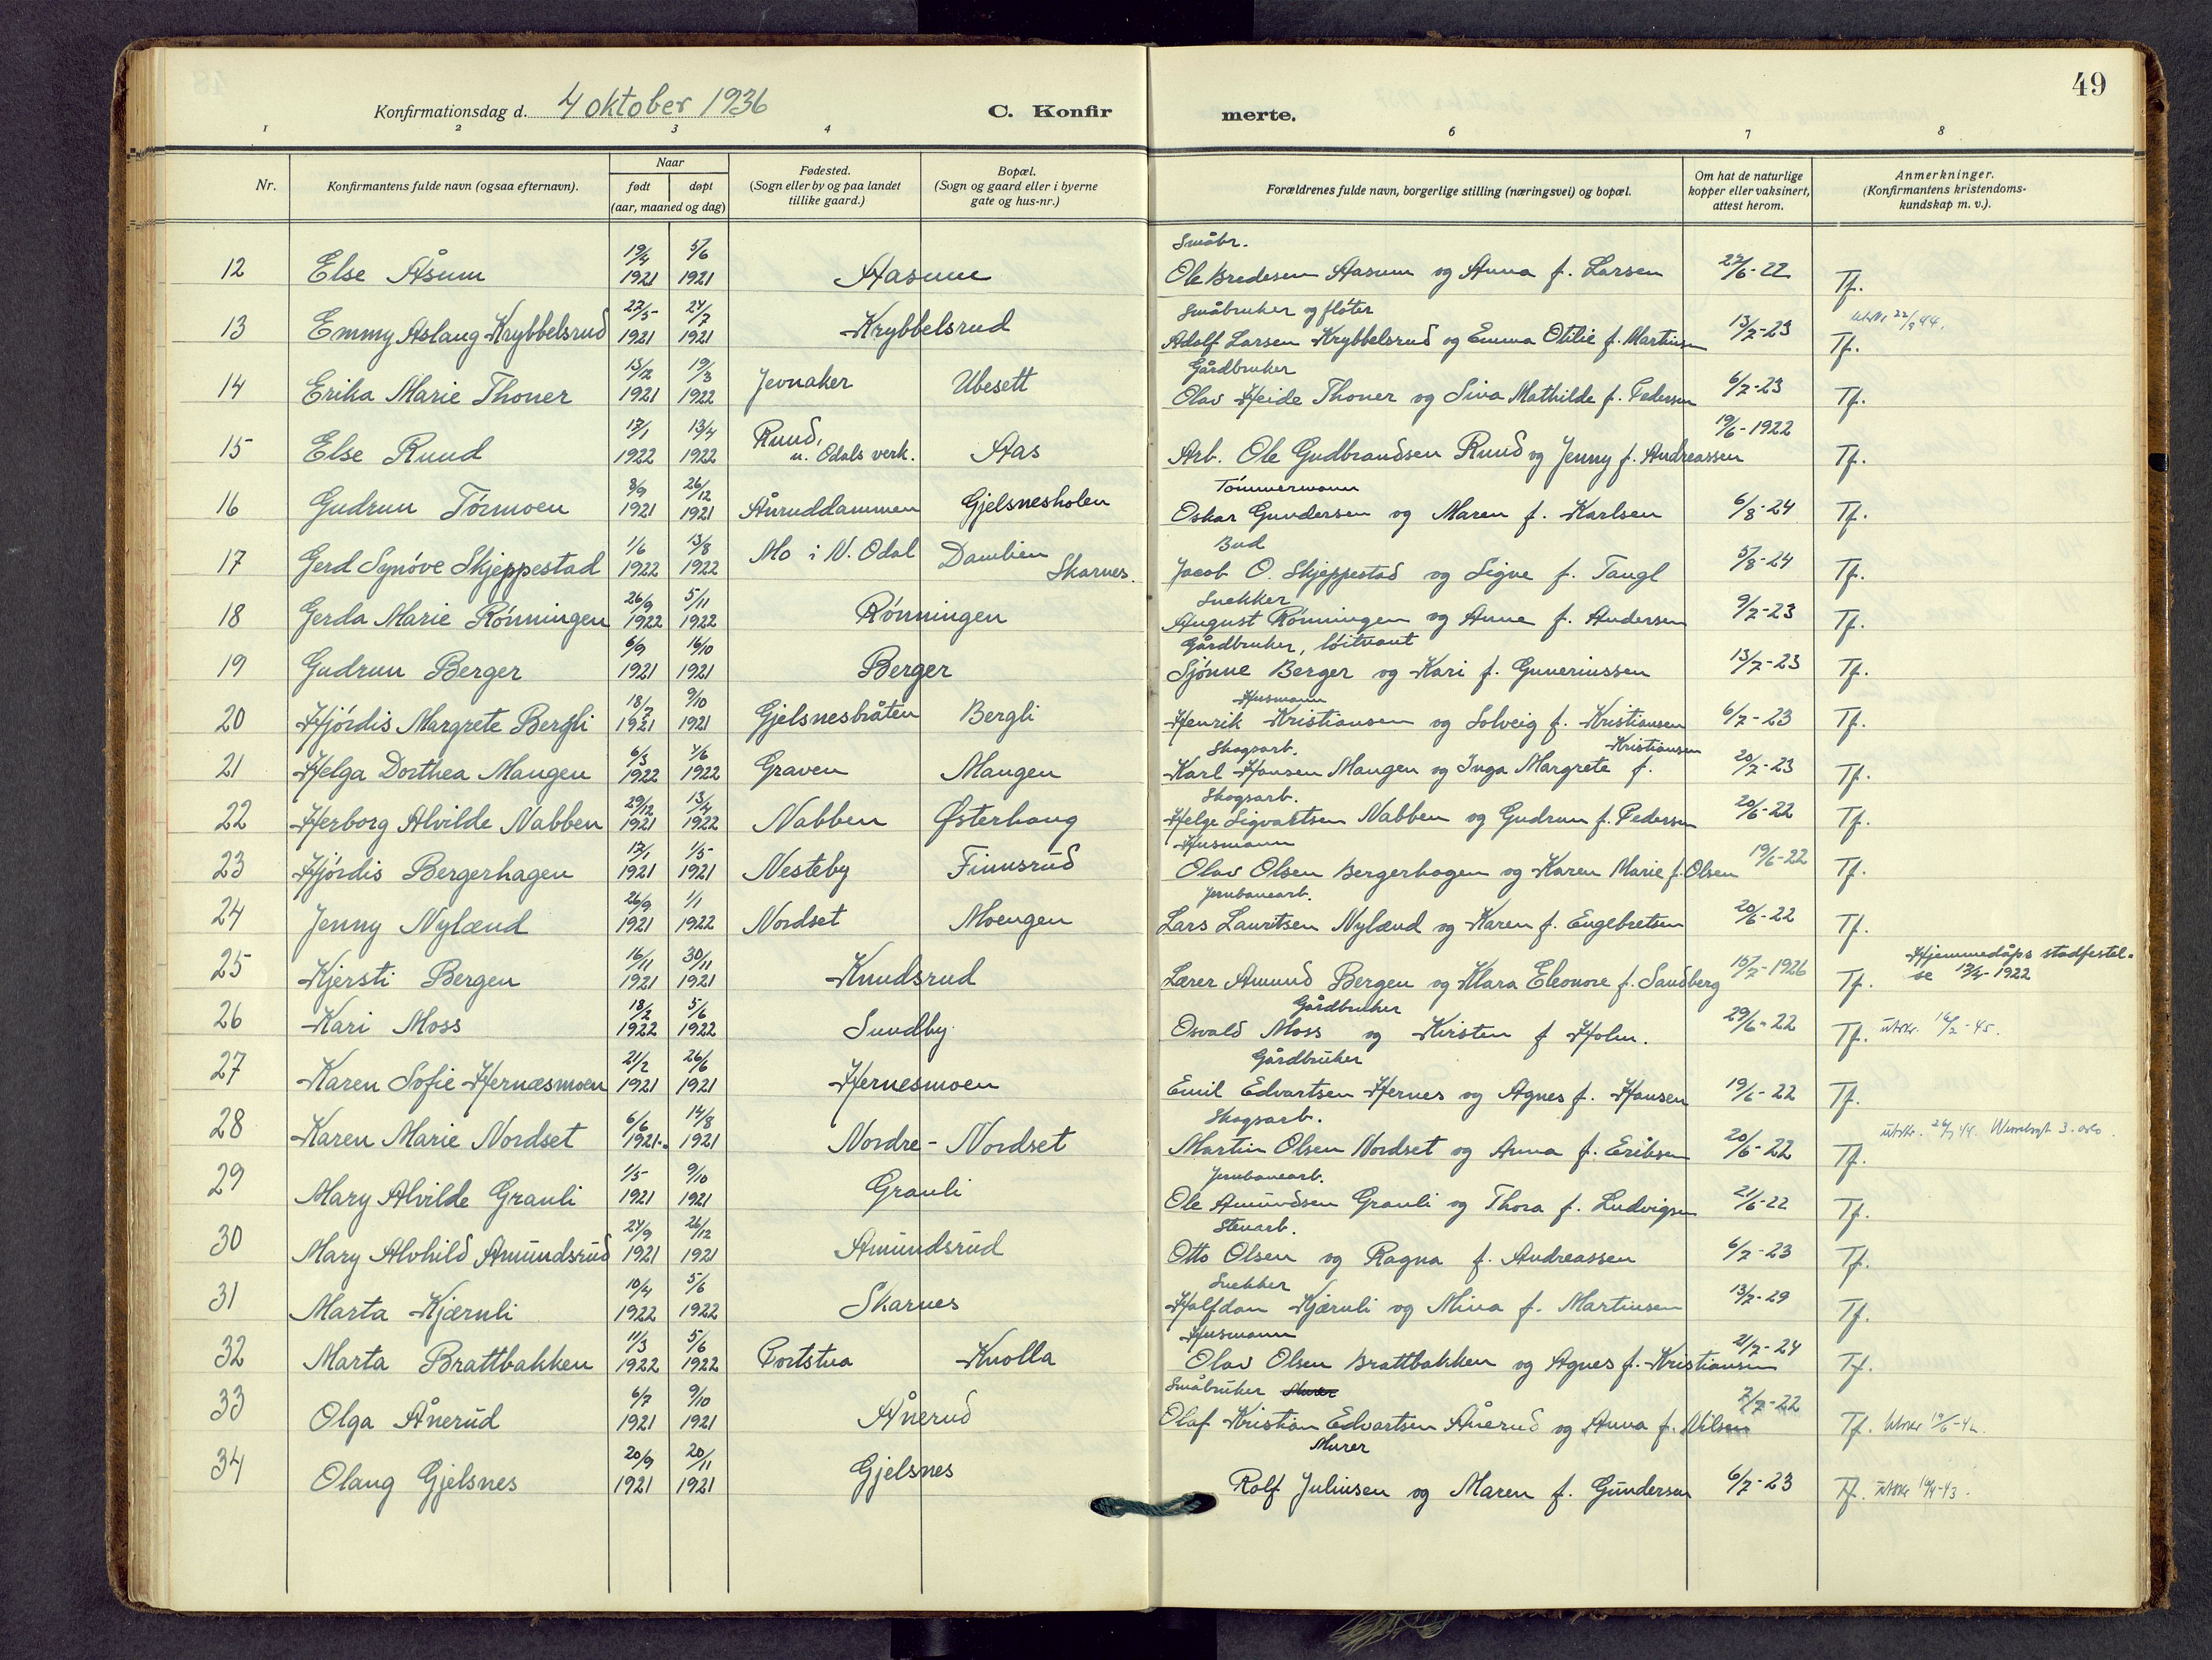 49
Konfirmationsdag d. 4 oktober 1936 C. Konfirmerte.
1 2 3 4 6 7 8
Nr. Konfirmantens fulde navn (ogsaa efternavn). Naar født døpt (aar, maaned og dag) Fødested. (Sogn eller by og paa landet tillike gaard.) Bopæl. (Sogn og gaard eller i byerne gate og hus-nr.) Forældrenes fulde navn, borgerlige stilling (næringsvei) og bopæl. Om hat de naturlige kopper eller vaksinert, attest herom. Anmerkninger. (Konfirmantens kristendoms-kundskap m. v.).
12 Else Åsum 19/4 1921 5/6 1921 Aasum Småbr. Ole Bredesen Aasum og Anna f. Larsen 22/6-22 Tf.
13 Emmy Aslaug Krybbelsrud 27/5 1921 24/7 1921 Krybbelsrud Småbruker og fløter Adolf Larsen Krybbelsrud og Emma Otilie f. Martinsen 13/7-23 Tf.
14 Erika Marie Thoner 13/12 1921 19/3 1922 Jevnaker Ubesett Gårdbruker Olav Heide Thoner og Siva Mathilde f. Pedersen 6/7-23 Tf.
15 Else Ruud 17/1 1922 13/4 1922 Ruud, u. Odals verk. Aas Arb. Ole Gudbrandsen Ruud og Jenny f. Andreassen 19/6-1922 Tf.
16 Gudrun Tørmoen 8/9 1921 26/12 1921 Åнruddammen Gjelsnesholen Tømmermann Oskar Gundersen og Maren f. Karlsen 6/8-24 Tf.
17 Gerd Synøve Skjeppestad 1/6 1922 13/8 1922 Mo i N. Odal Damlien Skarnes. Bud Jacob O. Skjeppestad og Signe f. Tangl 5/8-24 Tf.
18 Gerda Marie Rønningen 26/9 1922 5/11 1922 Rønningen Snekker August Rønningen og Anne f. Andersen 9/7-23 Tf.
19 Gudrun Berger 6/9 1921 16/10 1921 Berger Gårdbruker, løitnant Sjønne Berger og Kari f. Gunerinssen 13/7-23 Tf.
20 Hjørdis Margrete Bergli 18/7 1921 9/10 1921 Gjelsnesbråten Bergli Husmann Henrik Kristiansen og Solveig f. Kristiansen 6/7-23 Tf.
21 Helga Dorthea Mangen 6/3 1922 4/6 1922 Graven Mangen Skogsarb. Karl Hansen Mangen og Inga Margrete f. Kristiansen 20/7-23 Tf.
22 Herborg Alvilde Nabben 29/12 1921 13/4 1922 Nabben Østerhaug Skogsarb. Helge Sigvartsen Nabben og Gudrun f. Pedersen 20/6-22 Tf.
23 Hjørdis Bergerhagen 17/1 1921 1/5 1921 Nesteby Finnsrud Husmann Olav Olsen Bergerhagen og Karen Marie f. Olsen 19/6-22 Tf.
24 Jenny Nylænd 26/9 1921 1/1 1922 Nordset Moengen Jernbanearb. Lars Lauritsen Nylænd og Karen f. Engebretsen 20/6-22 Tf.
25 Kjersti Bergen 16/11 1921 30/11 1921 Knudsrud Lærer Amund Bergen og Klara Eleonore f. Sandberg 15/7-1926 Tf. Hjemmedåps stadfestelse 17/4-1922
26 Kari Moss 18/2 1922 5/6 1922 Sundby Gårdbruker Osvald Moss og Kirsten f Holm. 29/6-22 Tf. utskr. 16/2-45.
27 Karen Sofie Hernæsmoen 21/2 1921 26/6 1921 Hernesmoen Gårdbruker Emil Edvartsen Hernes og Agnes f. Hansen 19/6-22 Tf.
28 Karen Marie Nordset 6/6 1921. 14/8 1921 Nordre - Nordset Skogsarb. Martin Olsen Nordset og Anna f. Eriksen 20/6-22 Tf.
29 Mary Alvilde Granli 1/5 1921 9/10 1921 Granli Jernbanearb. Ole Amundsen Granli og Thora f. Ludvigsen 21/6-22 Tf.
30 Mary Alvhild Amundsrud 24/9 1921 26/12 1921 Amundsrud Stenarb. Otto Olsen og Ragna f. Andreassen 6/7-23 Tf.
31 Marta Kjærnli 10/4 1922 5/6 1922 Skarnes Snekker Halfdan Kjærnli og Mina f. Martinsen 13/7-29 Tf.
32 Marta Brattbakken 11/3 1922 5/6 1922 Portstua Knolla Husmann Olav Olsen Brattbakken og Agnes f. Kristiansen 21/7-24 Tf.
33 Olga Ånerud 6/7 1921 9/10 1921 Ånerud Småbruker Murer Olaf Kristian Edvartsen Ånerud og Anna f. Nilsen 7/7-22 Tf. utskr 19/6-42.
34 Olaug Gjelsnes 20/9 1921 20/11 1921 Gjelsnes Murer Rolf Juliusen og Maren f. Gundersen 6/7-23 Tf. utskr 16/4-43.